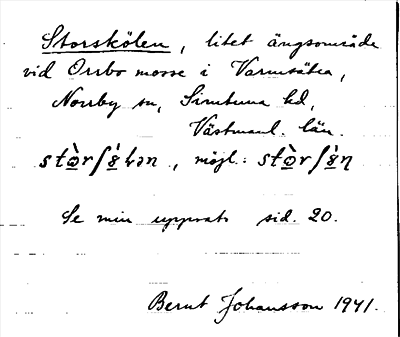 Storskölen, litet ängsområde
vid Orrbo mosse i Varmsätra,
Norrby sn, Simtuna hd,
Västmanl. län.
stò̱rʃö̱̀lən, möjl.: stò̱rʃö̱̀n
Se min uppsats sid. 20.
Bernt Johansson 1941.